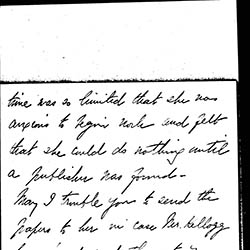 time was so limited that she was
anxious to begin work and felt
that she could do nothing until
a publisher was found -
May I trouble you to send the
papers to her in case Mr. Kellogg